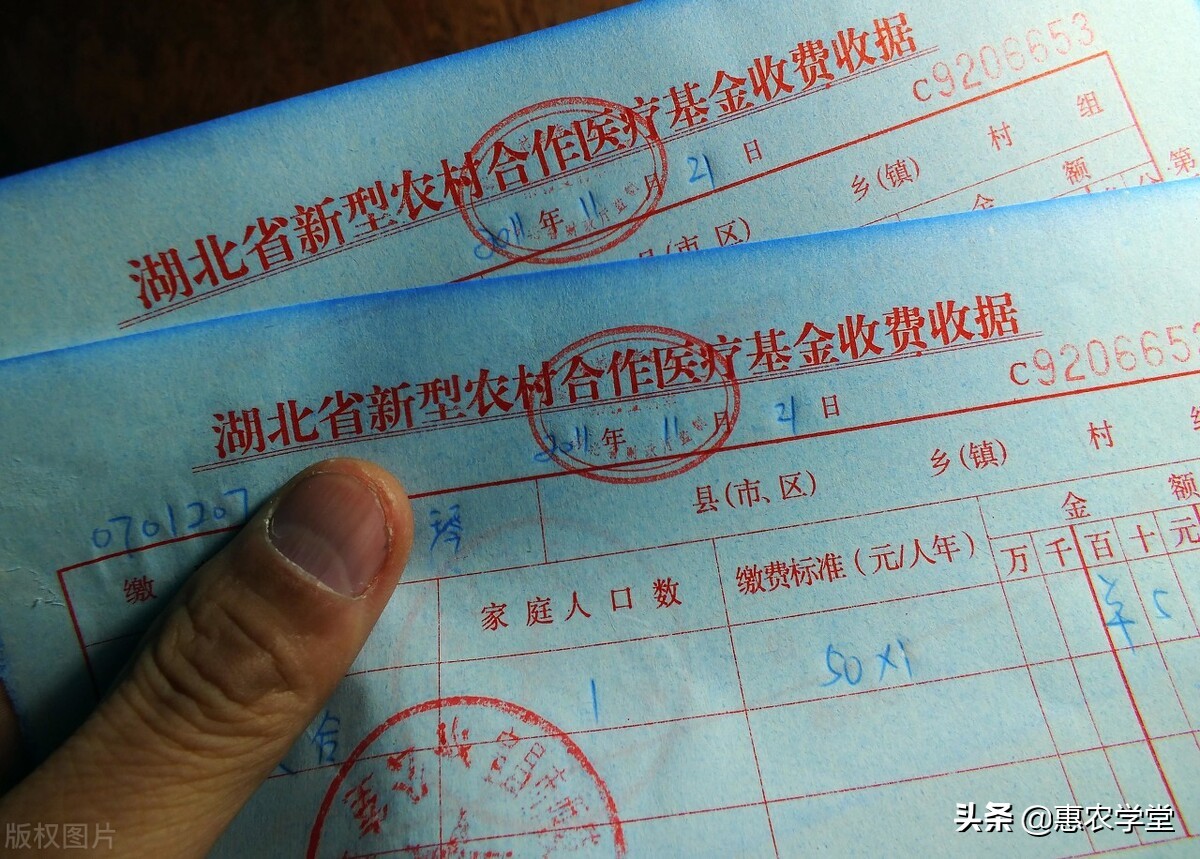 湖北省新型农村合作医疗基金收费收据
C9206653
2011 年 11 月 21 日
县(市、区) 乡(镇) 村 组
金 额
第
湖北省新型农村合作医疗基金收费收据
C920665
2011 年 11 月 21 日
0701207 琴 县(市、区) 乡(镇) 村
缴 家庭人口数 缴费标准(元/人年) 金 额
万 千 百 十 元
1 50×1 5
合
版权图片
头条 @惠农学堂